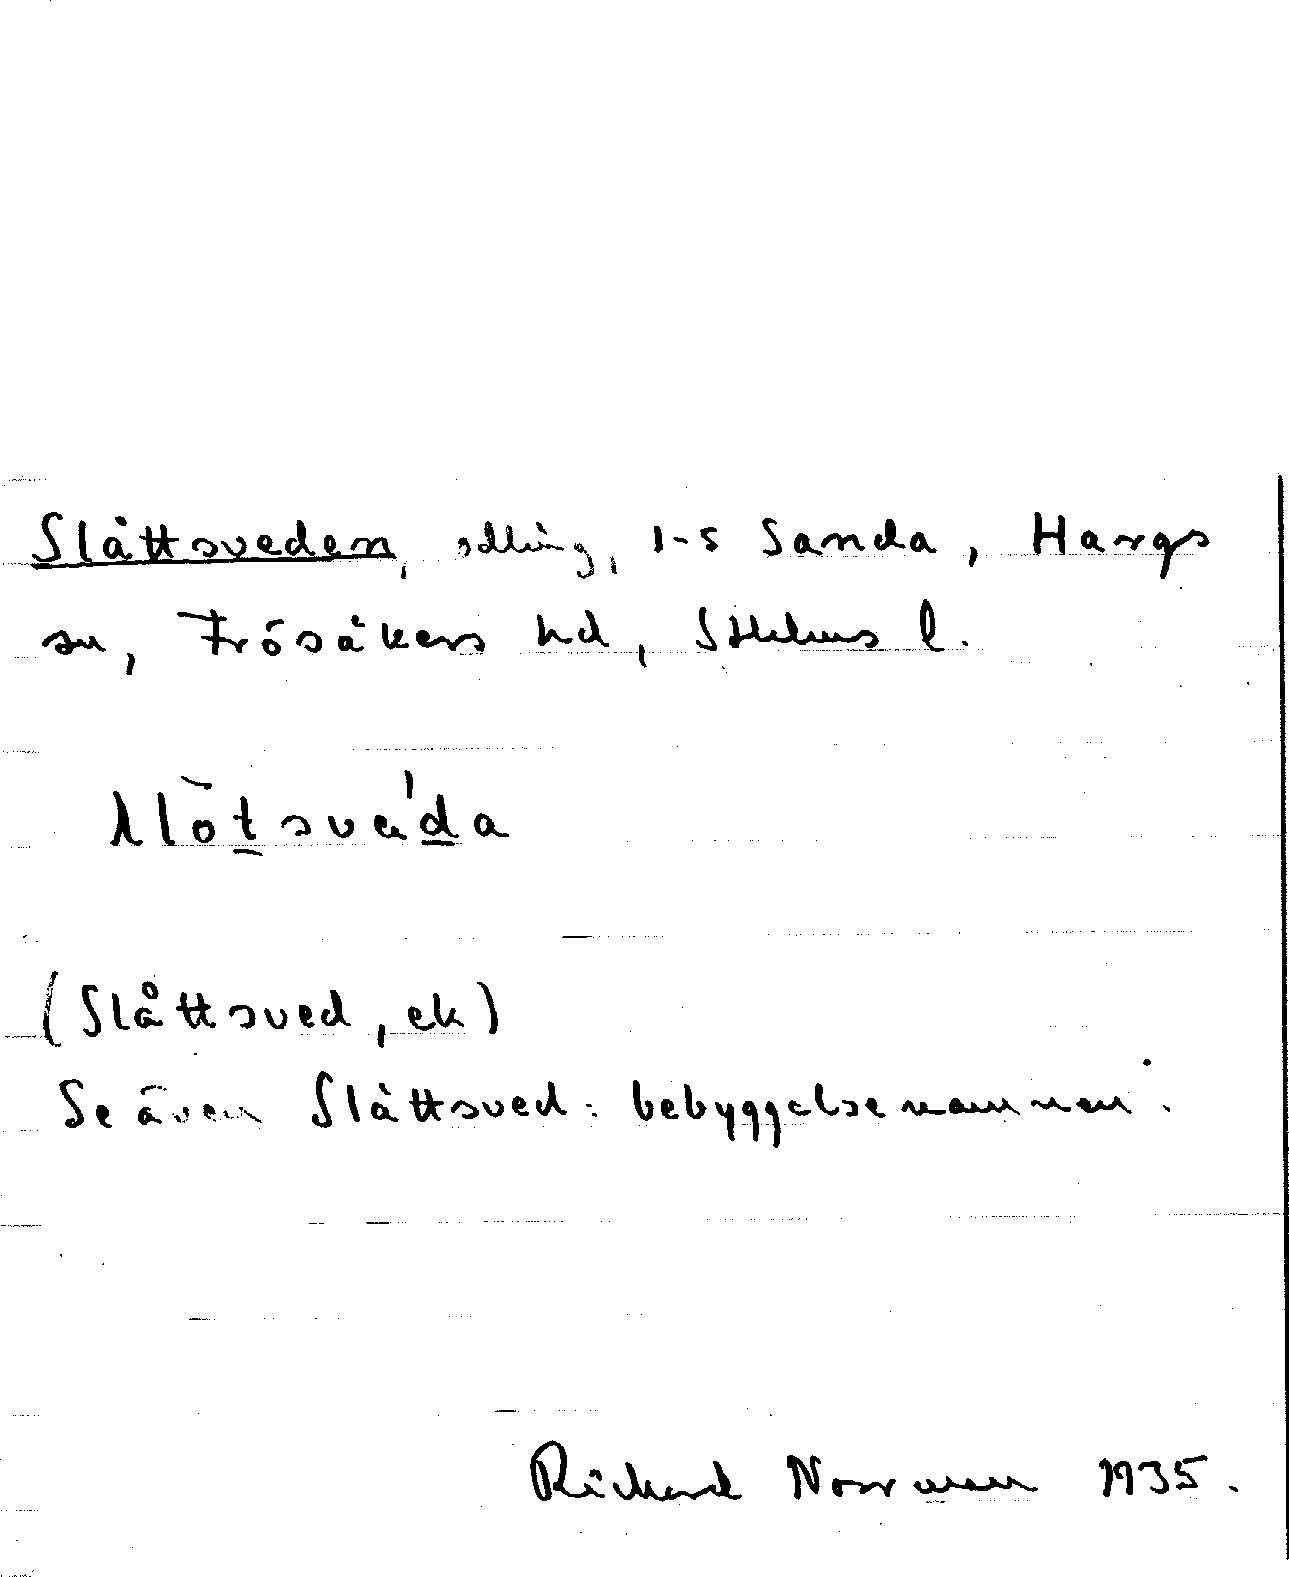 Slåttsveden, odling, 1-5 Sanda, Hargs
sn, Frösåkers hd, Sthlms l.
(Slåttsved, ek)
Se även Slåttsved: bebyggelsenamnen.
Rickard Norrman 1935.